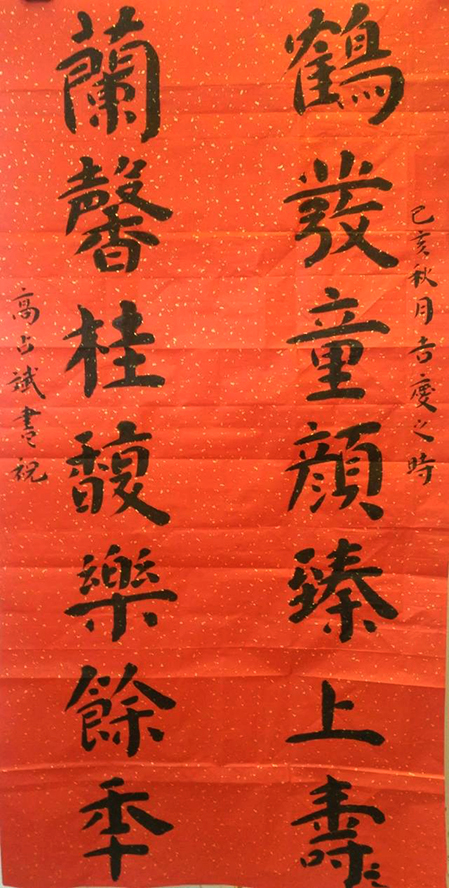 己亥秋月吉慶之時
鶴發童顏臻上壽
蘭馨桂馥樂餘年
高占斌書祝